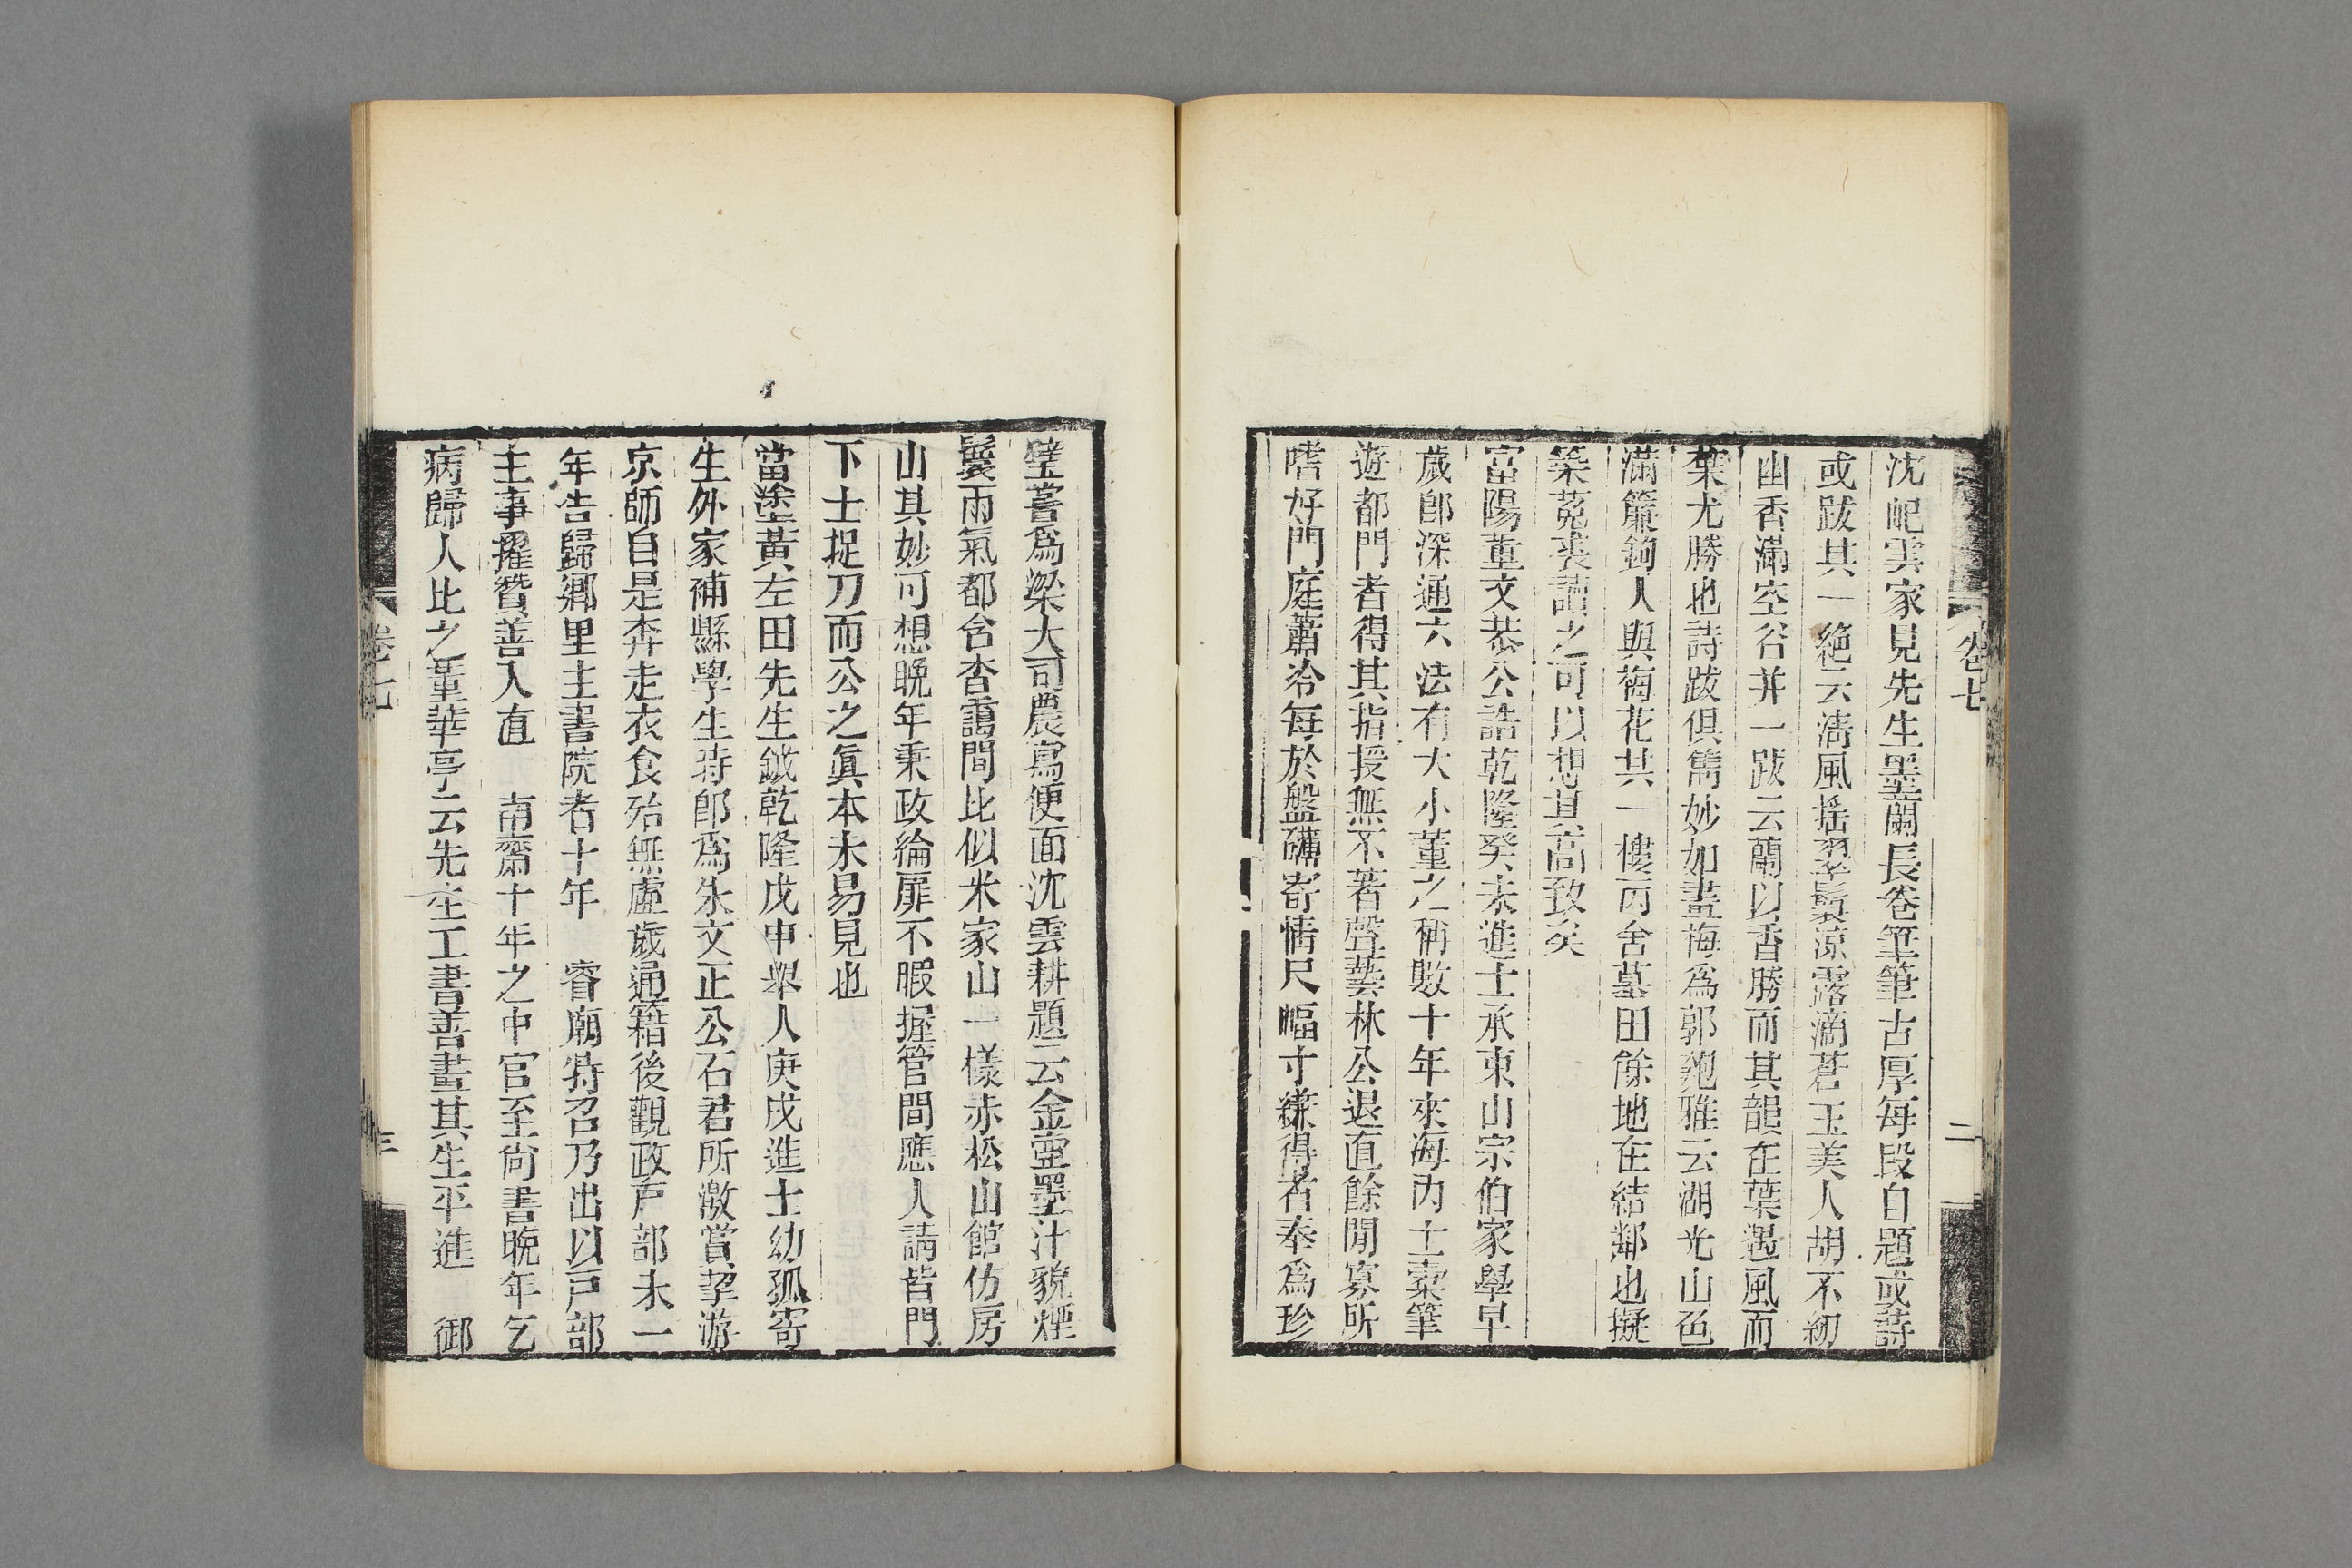 卷七
二
沈屺雲家見先生墨蘭長卷筆筆古厚每段自題或詩
或跋其一絶云淸風搖翠鬟涼露滴蒼玉美人胡不紉
幽香滿空谷并一跋云蘭以香勝而其韻在葉遇風而
葉尤勝也詩跋俱雋妙如畫梅爲郭匏雅云湖光山色
滿簾鉤人與梅花共一樓丙舍墓田餘地在結鄰也擬
築菟裘讀之可以想其高致矣
富陽董文恭公誥乾隆癸未進士承東山宗伯家學早
歲卽深通六法有大小董之稱數十年來海內士橐筆
遊都門者得其指授無不著聲藝林公退直餘閒寡所
嗜好門庭蕭冷每於盤礴寄情尺幅寸縑得者奉爲珍
璧嘗爲梁大司農寫便面沈雲耕題云金壺墨汁貌煙
鬟雨氣都含杳靄間比似米家山一樣赤松山館仿房
山其妙可想晩年秉政綸扉不暇握管間應人請皆門
下士捉刀而公之眞本未易見也
當塗黃左田先生鉞乾隆戊申舉人庚戌進士幼孤寄
生外家補縣學生時卽爲朱文正公石君所激賞挈游
京師自是奔走衣食殆無虛歲通籍後觀政戸部未一
年告歸鄕里主書院者十年　睿廟特召乃出以戸部
主事擢贊善入直　南齋十年之中官至尙書晩年乞
病歸人比之董華亭云先生工書善畫其生平進　御
卷七
三